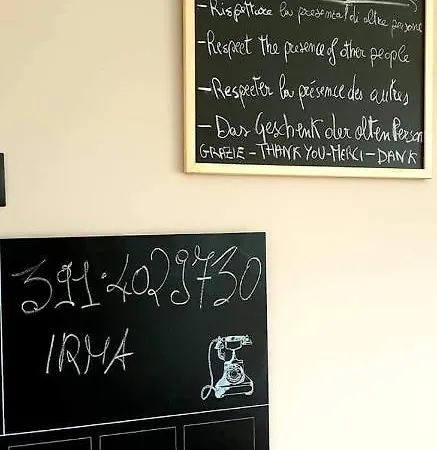 - Rispettare la presenza di altre persone
- Respect the presence of other people
- Respecter la présence des autres
- Das Geschenk der alten Person
GRAZIE - THANK YOU - MERCI - DANK
391.4029730
IRMA